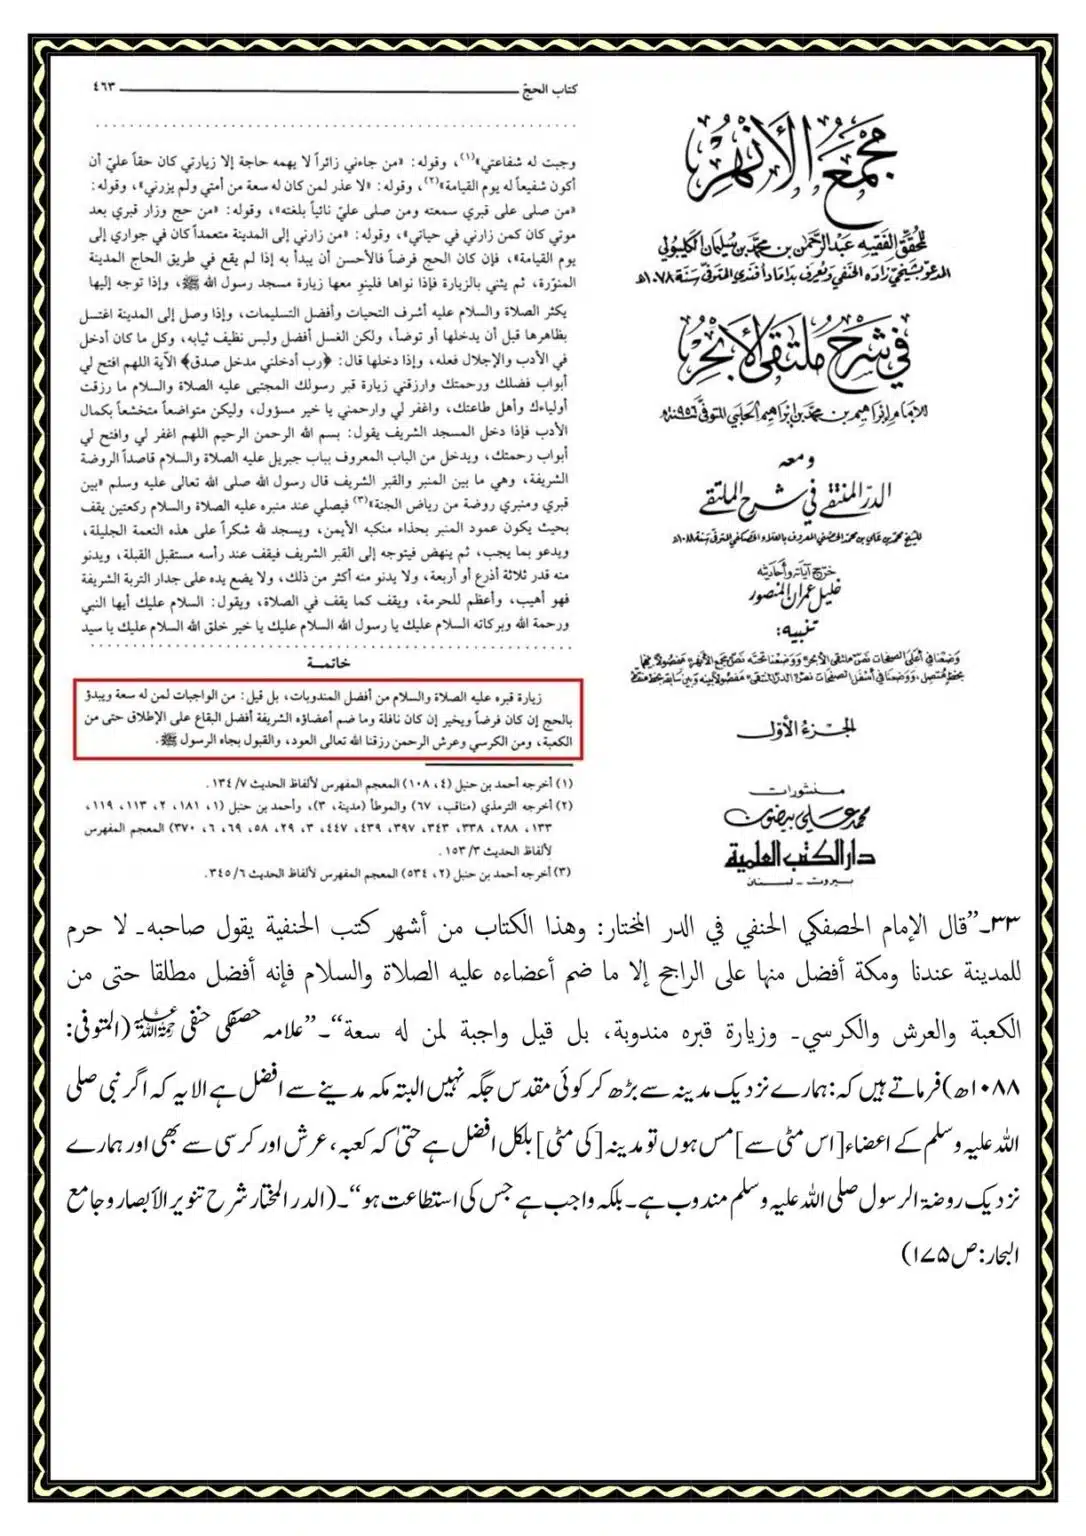 كتاب الحجّ ٤٦٣
وجبت له شفاعتي»(١)، وقوله: «من جاءني زائراً لا يهمه حاجة إلا زيارتي كان حقاً عليّ أن
أكون شفيعاً له يوم القيامة»(٢)، وقوله: «لا عذر لمن كان له سعة من أمتي ولم يزرني»، وقوله:
«من صلى على قبري سمعته ومن صلى عليّ نائياً بلغته»، وقوله: «من حج وزار قبري بعد
موتي كان كمن زارني في حياتي»، وقوله: «من زارني إلى المدينة متعمداً كان في جواري إلى
يوم القيامة»، فإن كان الحج فرضاً فالأحسن أن يبدأ به إذا لم يقع في طريق الحاج المدينة
المنوّرة، ثم يثني بالزيارة فإذا نواها فلينوِ معها زيارة مسجد رسول الله ﷺ، وإذا توجه إليها
يكثر الصلاة والسلام عليه أشرف التحيات وأفضل التسليمات، وإذا وصل إلى المدينة اغتسل
بظاهرها قبل أن يدخلها أو توضأ، ولكن الغسل أفضل ولبس نظيف ثيابه، وكل ما كان أدخل
في الأدب والإجلال فعله، وإذا دخلها قال: ﴿رب أدخلني مدخل صدق﴾ الآية اللهم افتح لي
أبواب فضلك ورحمتك وارزقني زيارة قبر رسولك المجتبى عليه الصلاة والسلام ما رزقت
أولياءك وأهل طاعتك، واغفر لي وارحمني يا خير مسؤول، وليكن متواضعاً متخشعاً بكمال
الأدب فإذا دخل المسجد الشريف يقول: بسم الله الرحمن الرحيم اللهم اغفر لي وافتح لي
أبواب رحمتك، ويدخل من الباب المعروف بباب جبريل عليه الصلاة والسلام قاصداً الروضة
الشريفة، وهي ما بين المنبر والقبر الشريف قال رسول الله صلى الله تعالى عليه وسلم «بين
قبري ومنبري روضة من رياض الجنة»(٣) فيصلي عند منبره عليه الصلاة والسلام ركعتين يقف
بحيث يكون عمود المنبر بحذاء منكبه الأيمن، ويسجد لله شكراً على هذه النعمة الجليلة،
ويدعو بما يجب، ثم ينهض فيتوجه إلى القبر الشريف فيقف عند رأسه مستقبل القبلة، ويدنو
منه قدر ثلاثة أذرع أو أربعة، ولا يدنو منه أكثر من ذلك، ولا يضع يده على جدار التربة الشريفة
فهو أهيب، وأعظم للحرمة، ويقف كما يقف في الصلاة، ويقول: السلام عليك أيها النبي
ورحمة الله وبركاته السلام عليك يا رسول الله السلام عليك يا خير خلق الله السلام عليك يا سيد
خاتمة
زيارة قبره عليه الصلاة والسلام من أفضل المندوبات، بل قيل: من الواجبات لمن له سعة ويبدؤ
بالحج إن كان فرضاً ويخير إن كان نافلة وما ضم أعضاؤه الشريفة أفضل البقاع على الإطلاق حتى من
الكعبة، ومن الكرسي وعرش الرحمن رزقنا الله تعالى العود، والقبول بجاه الرسول ﷺ.
(١) أخرجه أحمد بن حنبل (٤، ١٠٨) المعجم المفهرس لألفاظ الحديث ٧/ ١٣٤.
(٢) أخرجه الترمذي (مناقب، ٦٧) والموطأ (مدينة، ٣)، وأحمد بن حنبل (١، ١٨١، ٢، ١١٣، ١١٩،
١٣٣، ٢٨٨، ٣٣٨، ٣٤٣، ٣٩٧، ٤٣٩، ٤٤٧، ٣، ٢٩، ٥٨، ٦٩، ٦، ٣٧٠) المعجم المفهرس
لألفاظ الحديث ٣/ ١٥٣.
(٣) أخرجه أحمد بن حنبل (٢، ٥٣٤) المعجم المفهرس لألفاظ الحديث ٦/ ٣٤٥.
مجمع الأنهر
للمحقق الفقيه عبد الرحمن بن محمد بن سليمان الكليبولي
المدعو بشيخي زاده الحنفي ويعرف بداماد أفندي المتوفى سنة ١٠٧٨هـ
في شرح ملتقى الأبحر
للإمام إبراهيم بن محمد بن إبراهيم الحلبي المتوفى سنة ٩٥٦هـ
ومعه
الدر المنتقى في شرح الملتقى
للشيخ محمد بن علي بن محمد الحصني المعروف بالعلاء الحصكفي المتوفى سنة ١٠٨٨هـ
خرّج آياته وأحاديثه
خليل عمران المنصور
تنبيه:
وضعنا في أعلى الصفحات نصّ «ملتقى الأبحر» ووضعنا تحته نصّ «مجمع الأنهر» مفصولاً بينهما
بخط متصل، ووضعنا في أسفل الصفحات نصّ «الدر المنتقى» مفصولاً بينه وبين سابقه بخط منقط
الجزء الأول
منشورات
محمد علي بيضون
دار الكتب العلمية
بيروت - لبنان
٣٣۔”قال الإمام الحصفكي الحنفي في الدر المختار: وهذا الكتاب من أشهر كتب الحنفية يقول صاحبه۔ لا حرم
للمدينة عندنا ومكة أفضل منها على الراجح إلا ما ضم أعضاءه عليه الصلاة والسلام فإنه أفضل مطلقا حتى من
الكعبة والعرش والكرسي۔ وزيارة قبره مندوبة، بل قيل واجبة لمن له سعة“۔”علامہ حصفکی حنفی رحمۃ اللہ علیہ (المتوفی:
۱۰۸۸ھ)فرماتے ہیں کہ:ہمارے نزدیک مدینہ سے بڑھ کر کوئی مقدس جگہ نہیں البتہ مکہ مدینے سے افضل ہے الا یہ کہ اگر نبی صلی
اللہ علیہ وسلم کے اعضاء[اس مٹی سے]مس ہوں تو مدینہ[کی مٹی]بلکل افضل ہے حتیٰ کہ کعبہ، عرش اور کرسی سے بھی اور ہمارے
نزدیک روضۃ الرسول صلی اللہ علیہ وسلم مندوب ہے۔بلکہ واجب ہے جس کی استطاعت ہو“۔(الدر المختار شرح تنویر الأبصار وجامع
البحار:ص۱۷۵)